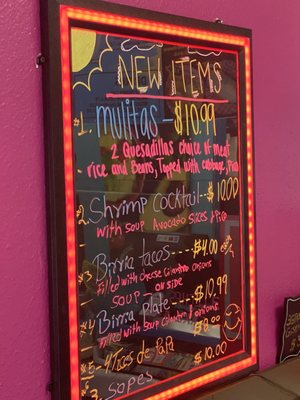 NEW ITEMS
#1. mulitas - $10.99
2 Quesadillas choice of meat
rice and Beans, Topped with cabbage, Pico
#2 Shrimp Cocktail -- $10.00
with soup Avocado slices Pico
#3 Birria tacos ---- $4.00
filled with cheese cilantro onions
soup on side
#4 Birria plate ---- $10.99
filled with soup cilantro & onions
#5 - 4 Tacos de PaPa $8.00
Sopes $10.00